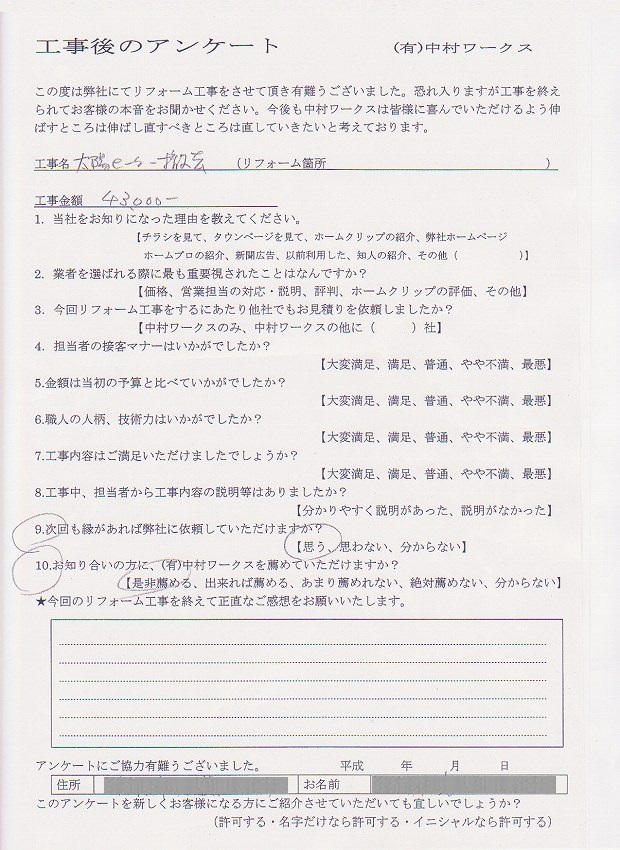 工事後のアンケート (有)中村ワークス
この度は弊社にてリフォーム工事をさせて頂き有難うございました。恐れ入りますが工事を終え
られてお客様の本音をお聞かせください。今後も中村ワークスは皆様に喜んでいただけるよう伸
ばすところは伸ばし直すべきところは直していきたいと考えております。
工事名 太陽 (リフォーム箇所 )
工事金額 43,000-
1. 当社をお知りになった理由を教えてください。
【チラシを見て、タウンページを見て、ホームクリップの紹介、弊社ホームページ
ホームプロの紹介、新聞広告、以前利用した、知人の紹介、その他( )】
2. 業者を選ばれる際に最も重要視されたことはなんですか?
【価格、営業担当の対応・説明、評判、ホームクリップの評価、その他】
3. 今回リフォーム工事をするにあたり他社でもお見積りを依頼しましたか?
【中村ワークスのみ、中村ワークスの他に( )社】
4. 担当者の接客マナーはいかがでしたか?
【大変満足、満足、普通、やや不満、最悪】
5.金額は当初の予算と比べていかがでしたか?
【大変満足、満足、普通、やや不満、最悪】
6.職人の人柄、技術力はいかがでしたか?
【大変満足、満足、普通、やや不満、最悪】
7.工事内容はご満足いただけましたでしょうか?
【大変満足、満足、普通、やや不満、最悪】
8.工事中、担当者から工事内容の説明等はありましたか?
【分かりやすく説明があった、説明がなかった】
9.次回も縁があれば弊社に依頼していただけますか?
【思う、思わない、分からない】
10.お知り合いの方に、(有)中村ワークスを薦めていただけますか?
【是非薦める、出来れば薦める、あまり薦めれない、絶対薦めない、分からない】
★今回のリフォーム工事を終えて正直なご感想をお願いいたします。
アンケートにご協力有難うございました。 平成 年 月 日
住所 お名前
このアンケートを新しくお客様になる方にご紹介させていただいても宜しいでしょうか?
(許可する・名字だけなら許可する・イニシャルなら許可する)